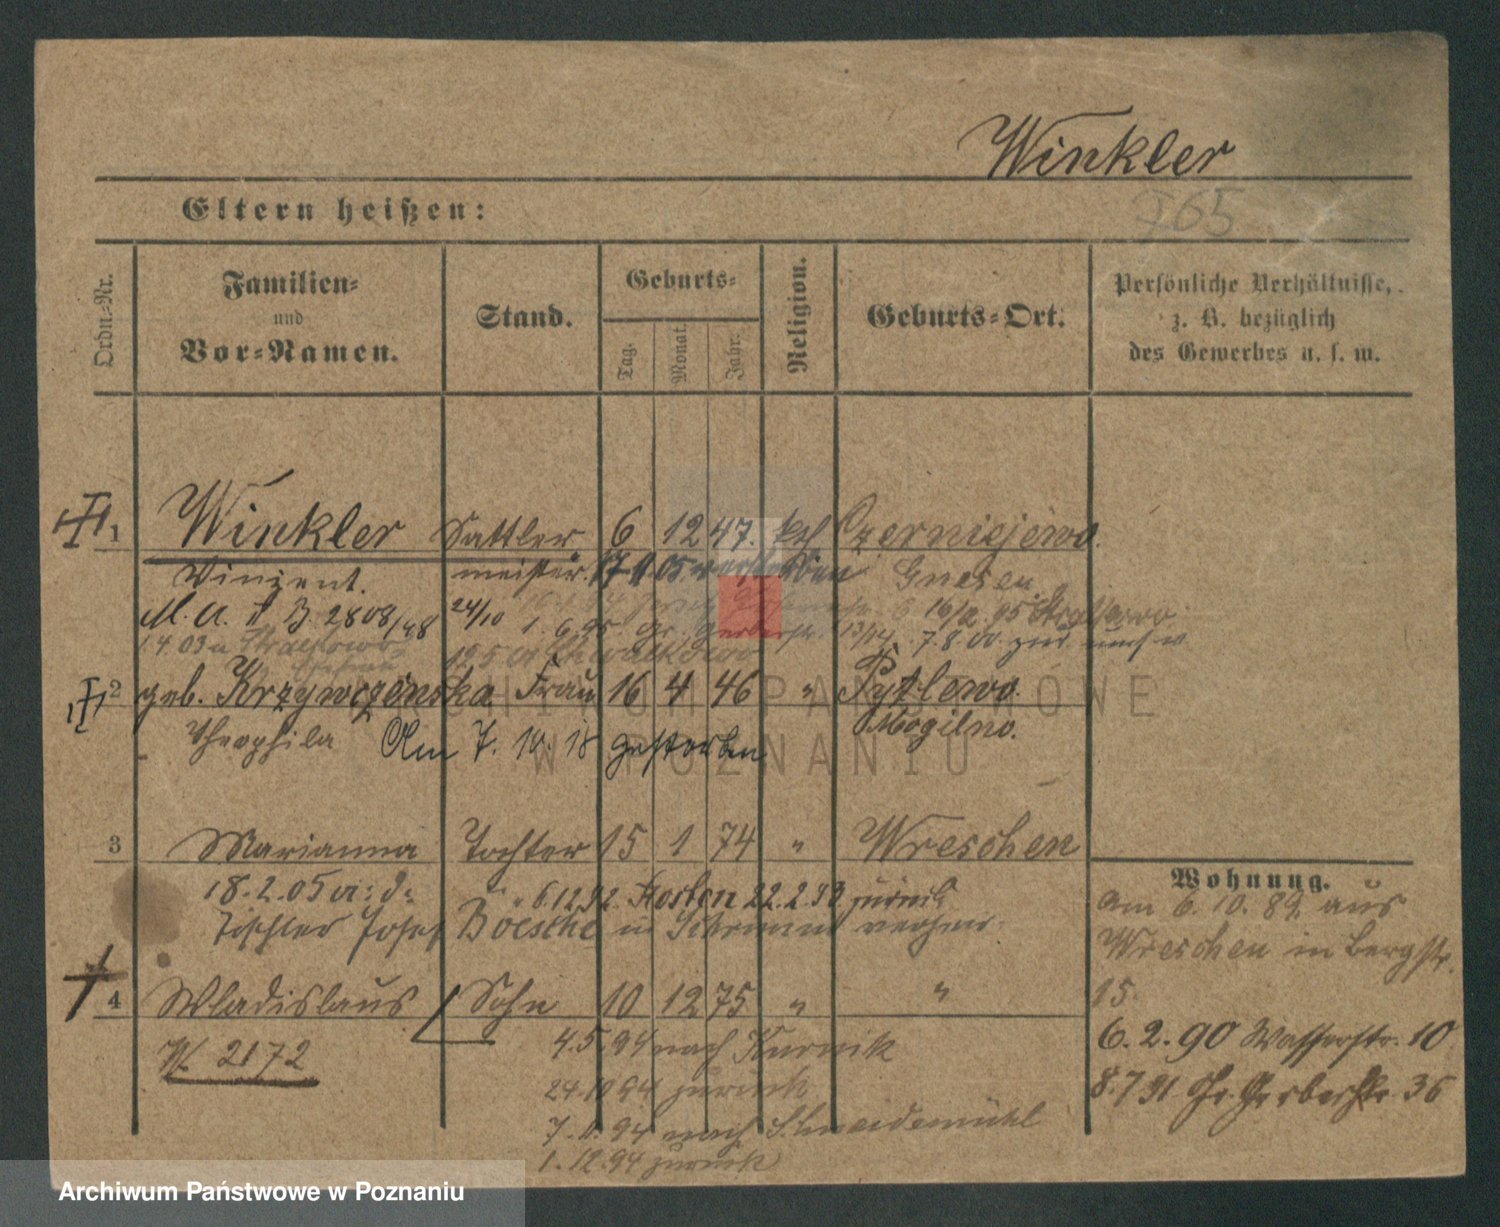 Winkler
I65
Eltern heißen:
Ordn.-Nr.
Familien-
und
Vor-Namen.
Stand.
Geburts-
Tag.
Monat.
Jahr.
Religion.
Geburts-Ort.
Persönliche Verhältnisse,
z. B. bezüglich
des Gewerbes u. s. m.
1 Winkler Sattler 6 12 47. kth Czerniejewo
Vinzent. meister. 17 11 05 verstorben Gnesen
M. A. II B. 2808/48 24/10
1. 6. 95. Gr. Gerberstr. 13/14. 7.8.00
14.03 Stralkowo
2 geb. Krzywczénska Frau 16 4 46 " Pytlewo.
Theophila Am 7. 10. 18 gestorben Mogilno.
3 Marianna Tochter 15 1 74 " Wreschen
18.2.05 6.12.92. Kosten 22.2.93 zurück
Tischler Josef Boesche in Schrimm
4 Wladislaus Sohn 10 12 75 " "
W. 2172
4.5.94 nach Kurnik
24.10.94 zurück
7.11.94 nach Schneidemühl
1.12.94 zurück
Wohnung.
am 6. 10. 89. aus
Wreschen in Bergstr.
15.
6. 2. 90 Wasserstr. 10
8.7 91 Gr. Gerberstr. 36
ARCHIWUM PAŃSTWOWE
W POZNANIU
Archiwum Państwowe w Poznaniu